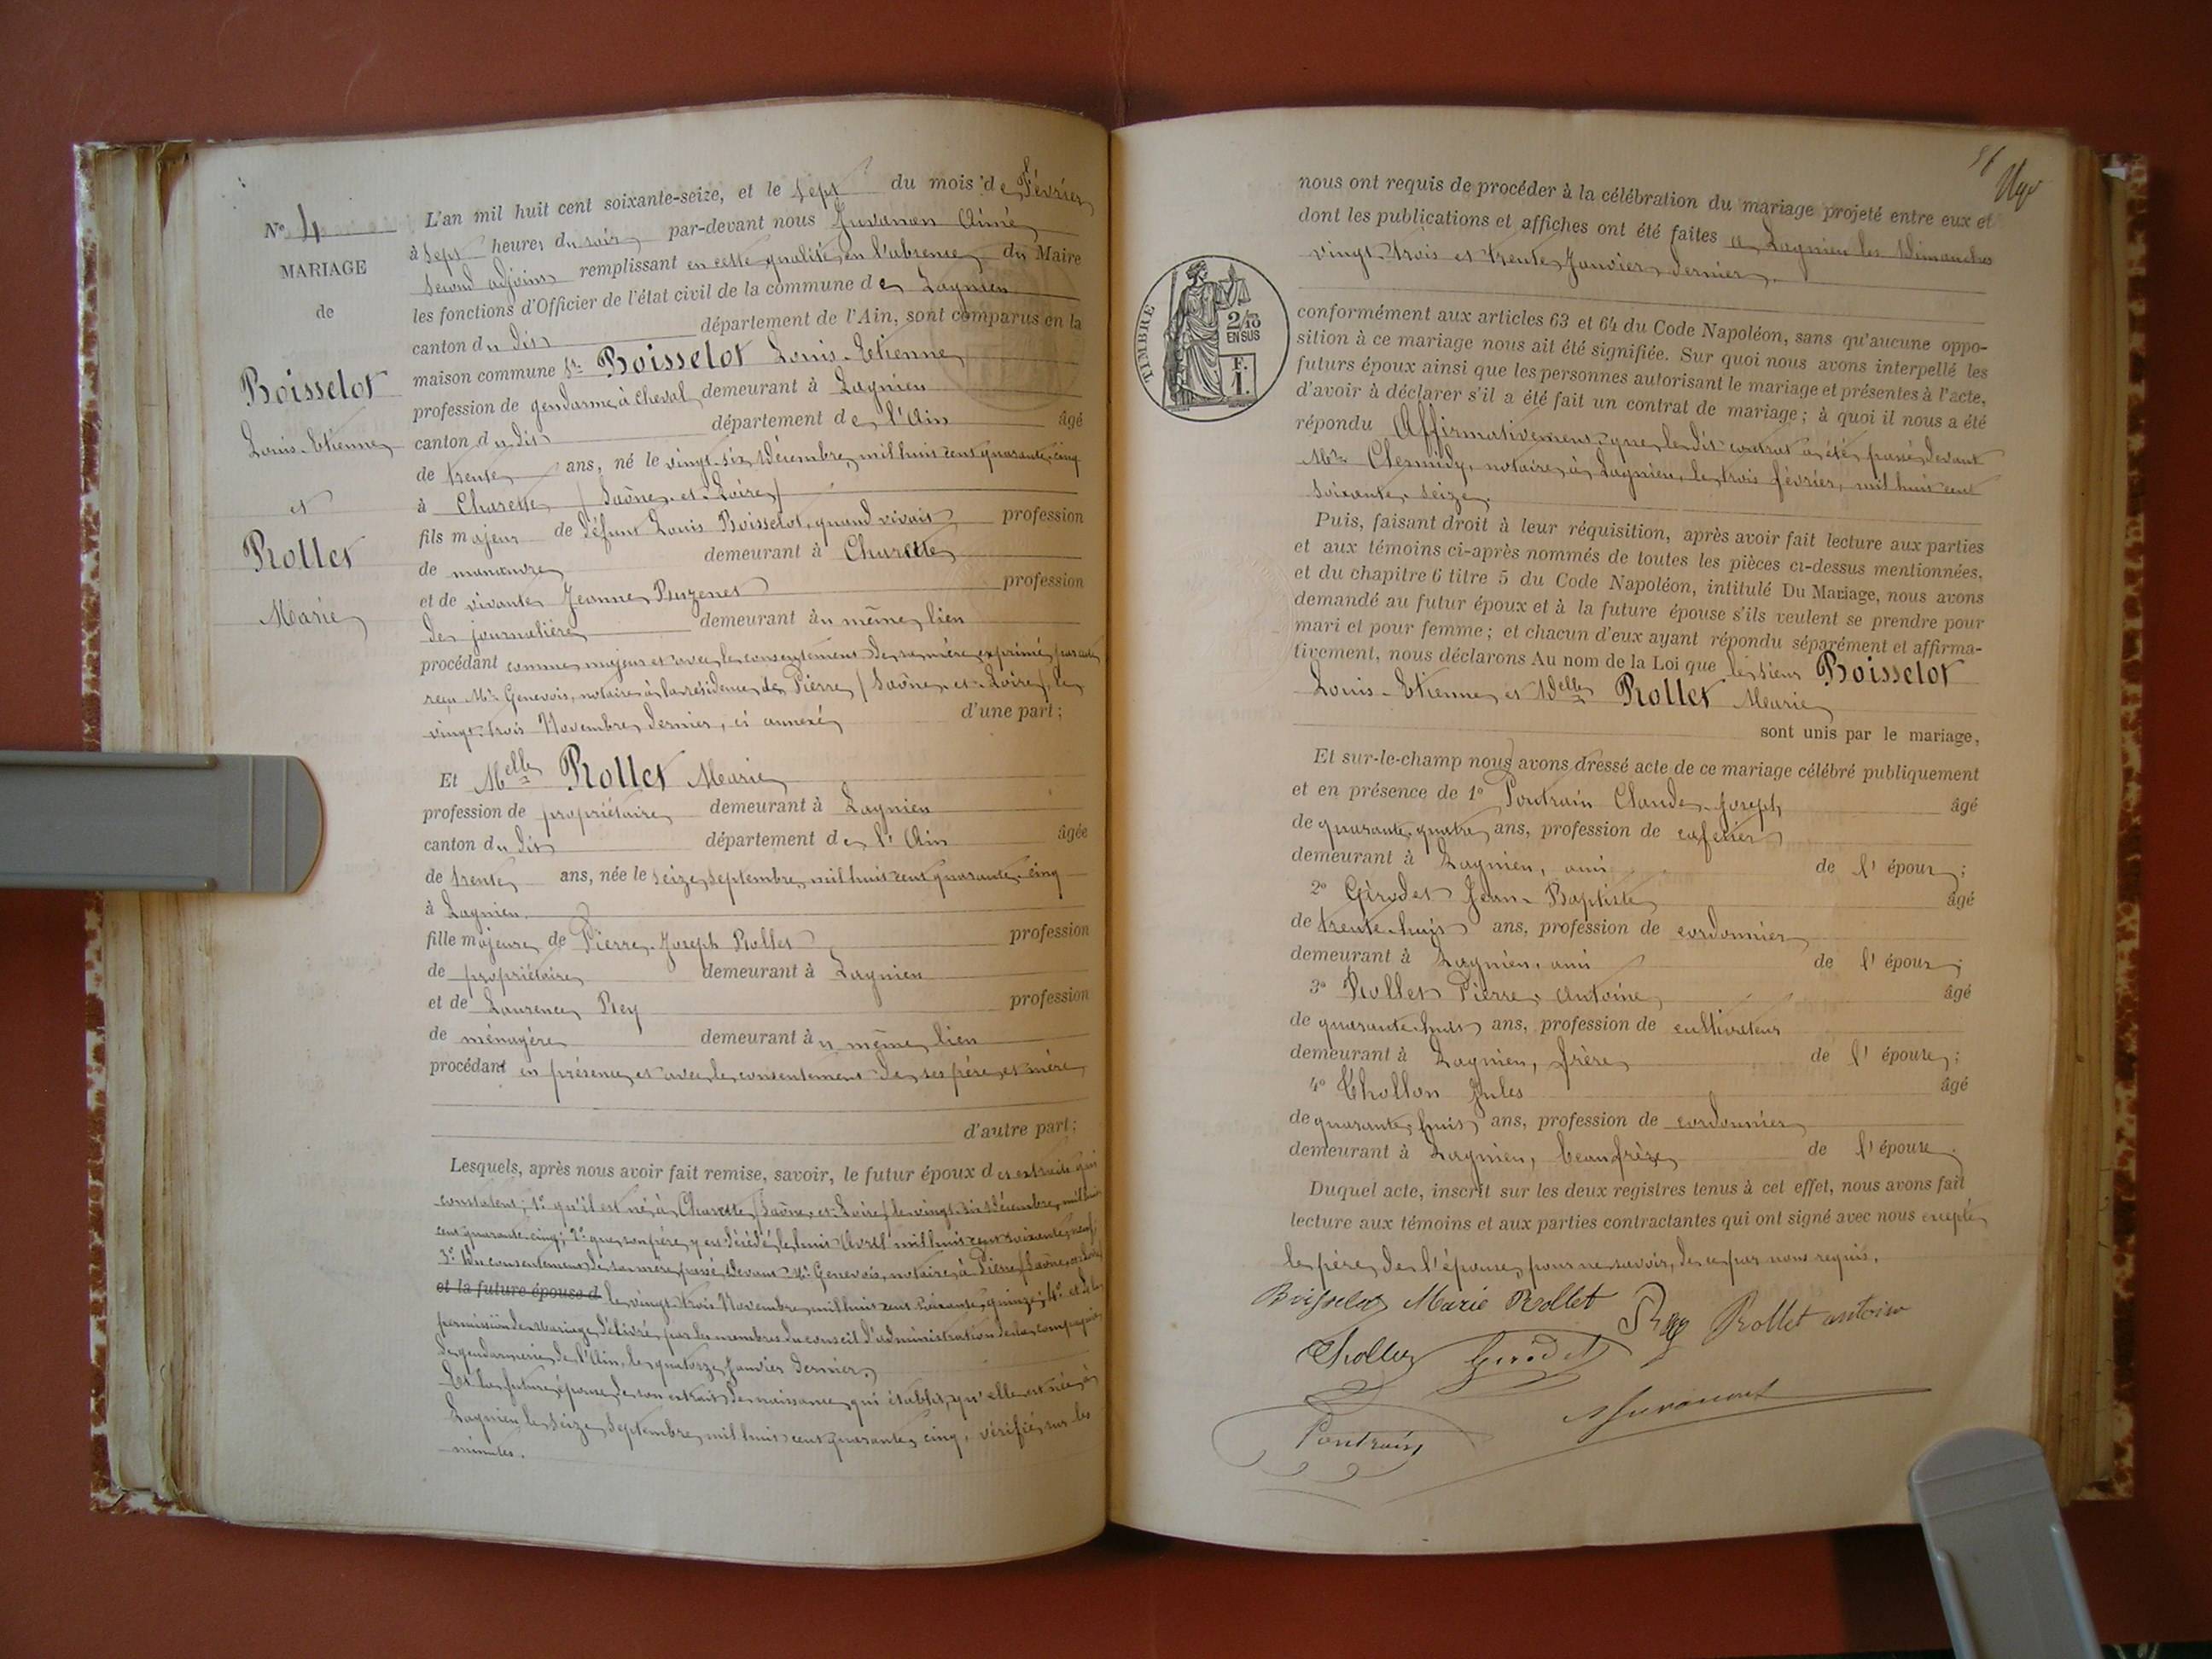 N° 4
MARIAGE
de
Boisselot
Louis-Etienne
et
Rollet
Marie
L'an mil huit cent soixante-seize, et le sept du mois de Février
à sept heures du soir par-devant nous Juvanon Aimé
second adjoint remplissant en cette qualité, en l'absence du Maire
les fonctions d'Officier de l'état civil de la commune de Lagnieu
canton du dit département de l'Ain, sont comparus en la
maison commune Sr Boisselot Louis-Etienne
profession de gendarme à cheval demeurant à Lagnieu
canton du dit département de l'Ain âgé
de trente ans, né le vingt-six Décembre mil huit cent quarante-cinq
à Charette (Saône-et-Loire)
fils majeur de défunt Louis Boisselot, quand vivait profession
de manœuvre demeurant à Charette
et de vivante Jeanne Puzenet profession
de journalière demeurant au même lieu
procédant comme majeur et avec le consentement de sa mère exprimé par acte
reçu Me Genevois, notaire à la résidence de Pierre (Saône-et-Loire), le
vingt-trois Novembre dernier, ci annexé d'une part;
Et Melle Rollet Marie
profession de propriétaire demeurant à Lagnieu
canton du dit département de l'Ain âgée
de trente ans, née le seize septembre mil huit cent quarante-cinq
à Lagnieu
fille majeure de Pierre-Joseph Rollet profession
de propriétaire demeurant à Lagnieu
et de Laurence Rey profession
de ménagère demeurant au même lieu
procédant en présence et avec le consentement de ses père et mère
d'autre part;
Lesquels, après nous avoir fait remise, savoir, le futur époux des extraits qui
constatent; 1° qu'il est né à Charette (Saône-et-Loire) le vingt-six Décembre mil huit
cent quarante-cinq; 2° que son père y est décédé le huit Avril mil huit cent soixante-neuf;
3° Du consentement de sa mère passé devant Me Genevois, notaire à Pierre (Saône-et-Loire)
et la future épouse d le vingt-trois Novembre mil huit cent soixante-quinze; 4° et de la
permission de mariage délivrée par les membres du conseil d'administration de la compagnie
de gendarmerie de l'Ain, le quatorze Janvier dernier.
Et la future épouse de son extrait de naissance qui établit qu'elle est née à
Lagnieu le seize septembre mil huit cent quarante-cinq, vérifié sur les
minutes.
nous ont requis de procéder à la célébration du mariage projeté entre eux et
dont les publications et affiches ont été faites à Lagnieu les Dimanches
vingt-trois et trente Janvier dernier.
TIMBRE
2/10
EN SUS
F.
1.
conformément aux articles 63 et 64 du Code Napoléon, sans qu'aucune oppo-
sition à ce mariage nous ait été signifiée. Sur quoi nous avons interpellé les
futurs époux ainsi que les personnes autorisant le mariage et présentes à l'acte,
d'avoir à déclarer s'il a été fait un contrat de mariage; à quoi il nous a été
répondu Affirmativement, que le dit contrat a été passé devant
Me notaire à Lagnieu, le trois février, mil huit cent
soixante-seize.
Puis, faisant droit à leur réquisition, après avoir fait lecture aux parties
et aux témoins ci-après nommés de toutes les pièces ci-dessus mentionnées,
et du chapitre 6 titre 5 du Code Napoléon, intitulé Du Mariage, nous avons
demandé au futur époux et à la future épouse s'ils veulent se prendre pour
mari et pour femme; et chacun d'eux ayant répondu séparément et affirma-
tivement, nous déclarons Au nom de la Loi que le sieur Boisselot
Louis-Etienne et Delle Rollet Marie
sont unis par le mariage,
Et sur-le-champ nous avons dressé acte de ce mariage célébré publiquement
et en présence de 1° Poutrain Claude-Joseph âgé
de quarante-quatre ans, profession de cafetier
demeurant à Lagnieu, ami de l'époux;
2° Girodet Jean-Baptiste âgé
de trente-huit ans, profession de cordonnier
demeurant à Lagnieu, ami de l'époux;
3° Rollet Pierre, Antoine âgé
de quarante-huit ans, profession de cultivateur
demeurant à Lagnieu, frère de l'épouse;
4° Thollon Jules âgé
de quarante-huit ans, profession de cordonnier
demeurant à Lagnieu, beau frère de l'épouse.
Duquel acte, inscrit sur les deux registres tenus à cet effet, nous avons fait
lecture aux témoins et aux parties contractantes qui ont signé avec nous excepté
le père de l'épouse, pour ne savoir, de ce par nous requis.
Boisselot Marie Rollet Rey Rollet antoine
Thollon Girodet
Poutrain